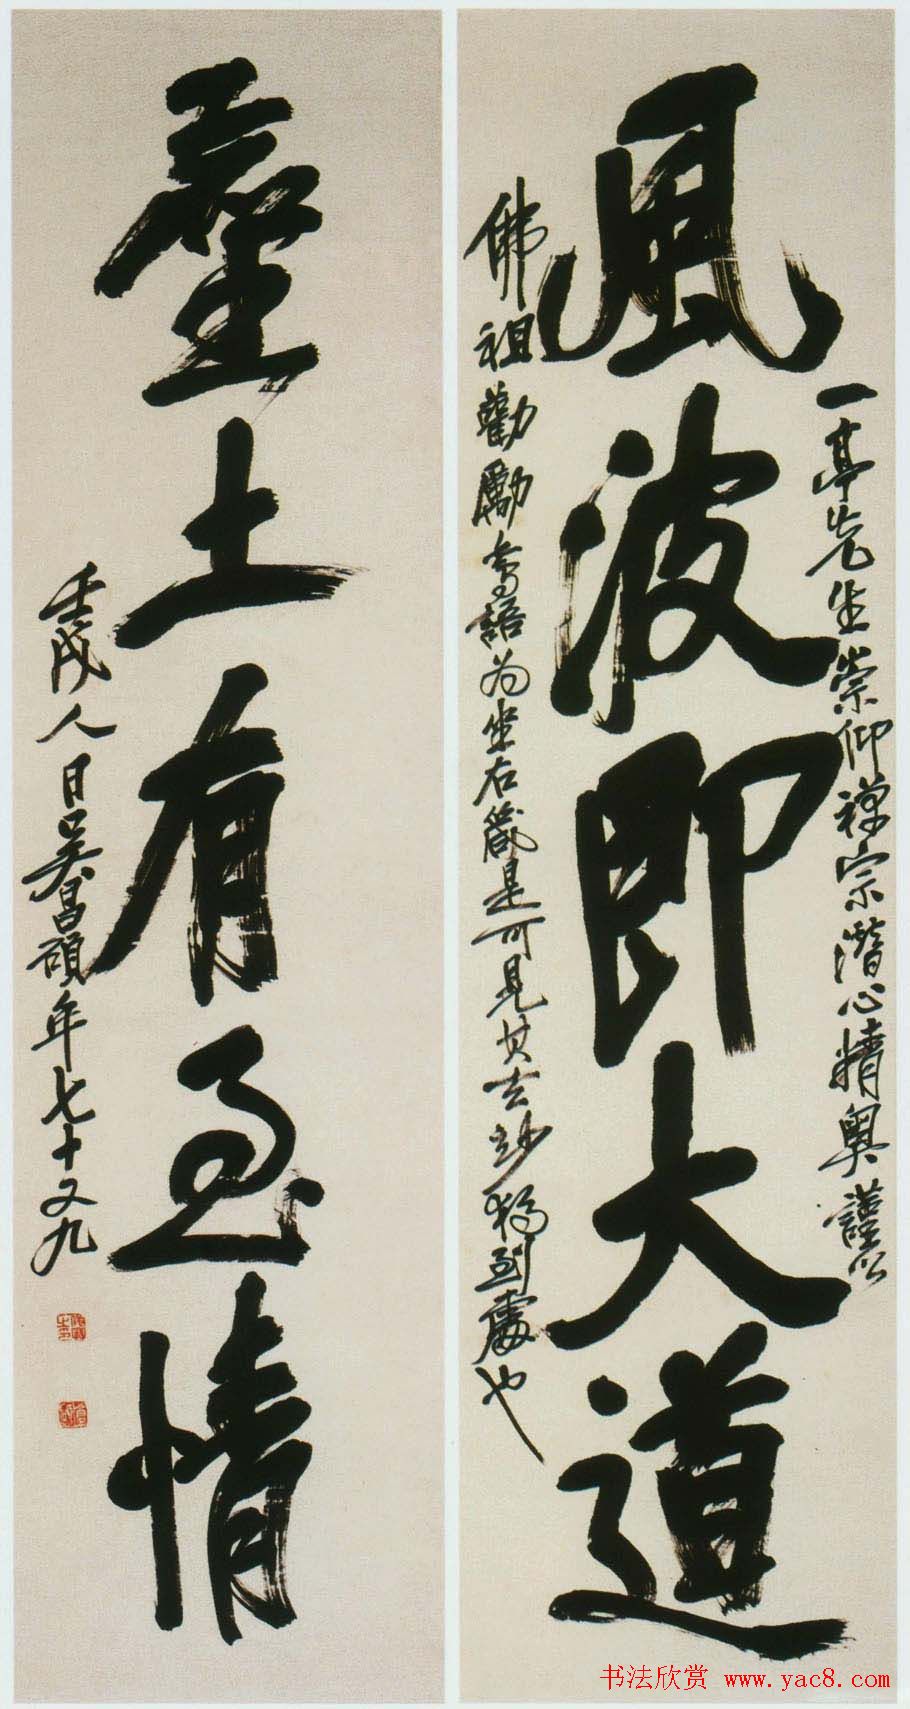 風波即大道
一亭先生崇仰禪宗潛心精奧謹以
佛祖勸勵語為坐右箴是可見其玄妙獨到處也
塵土有至情
壬戌人日吳昌碩年七十又九
书法欣赏 www.yac8.com